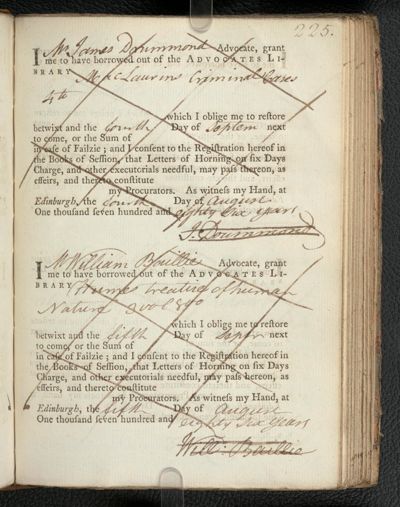 225.
I Mr James Drummond Advocate, grant
me to have borrowed out of the ADVOCATES LI-
BRARY McLaurins Criminal Cases
4th
which I oblige me to reſtore
betwixt and the fourth Day of Septem next
to come, or the Sum of
in caſe of Failzie ; and I conſent to the Regiſtration hereof in
the Books of Seſſion, that Letters of Horning on ſix Days
Charge, and other executorials needful, may paſs thereon, as
effeirs, and thereto conſtitute
my Procurators. As witneſs my Hand, at
Edinburgh, the fourth Day of August
One thouſand ſeven hundred and eighty Six years
J. Drummond
I Mr William Baillie Advocate, grant
me to have borrowed out of the ADVOCATES LI-
BRARY Humes treatise of human
Nature 2 vol 8vo
which I oblige me to reſtore
betwixt and the fifth Day of Septem next
to come, or the Sum of
in caſe of Failzie ; and I conſent to the Regiſtration hereof in
the Books of Seſſion, that Letters of Horning on ſix Days
Charge, and other executorials needful, may paſs hereon, as
effeirs, and thereto conſtitute
my Procurators. As witneſs my Hand, at
Edinburgh, the fifth Day of August
One thouſand ſeven hundred and eighty Six years
Will: Baillie